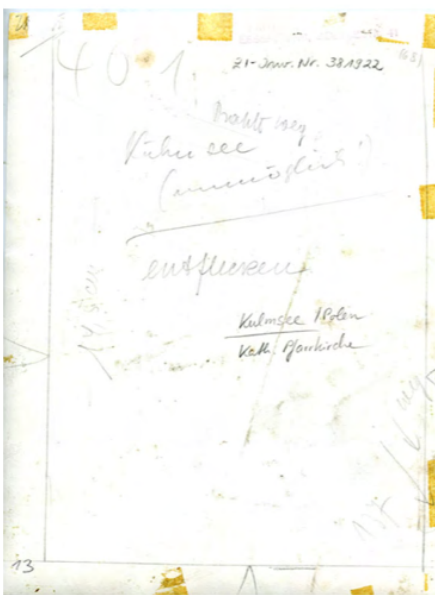 401.
ZI-Inv. Nr. 381922
(63)
weg
Kulmsee
(unmöglich!)
entflecken
Kulmsee / Polen
Kath. Pfarrkirche
13